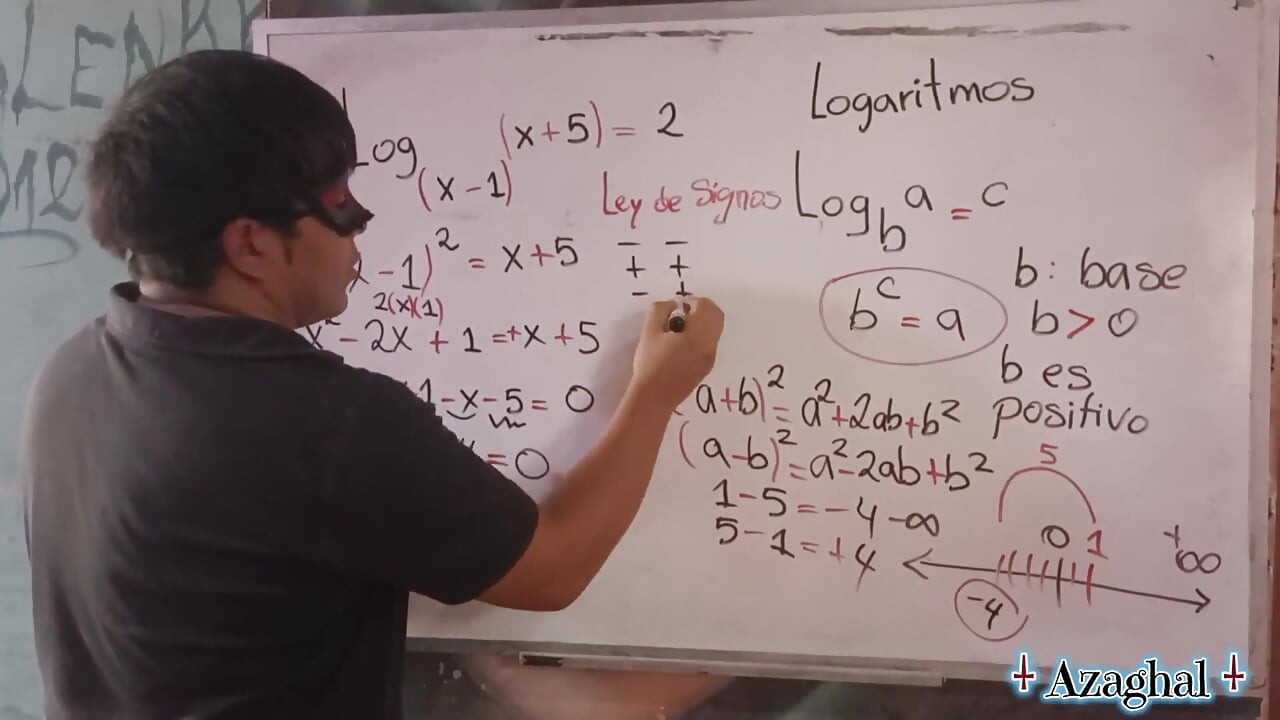 Logaritmos
Log(x-1) (x+5) = 2
Ley de Signos
- -
+ +
- +
Log_b a = c
b^c = a
b: base
b > 0
b es
positivo
x - 1)^2 = x+5
2(x)(1)
x^2 - 2x + 1 = +x + 5
1 - x - 5 = 0
= 0
(a+b)^2 = a^2+2ab+b^2
(a-b)^2 = a^2-2ab+b^2
1-5 = -4
5-1 = +4
-∞
5
0 1
+∞
-4
Azaghal